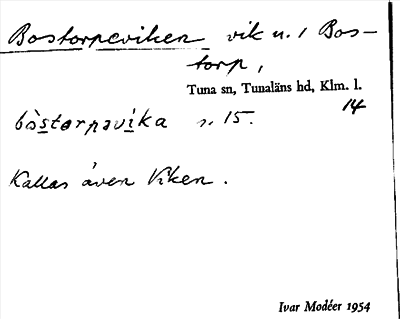 Bostorpeviken vik n. i Bos-
torp,
Tuna sn, Tunaläns hd, Klm. l.
14
bòstorpavíka s. 15.
Kallas även Viken.
Ivar Modéer 1954